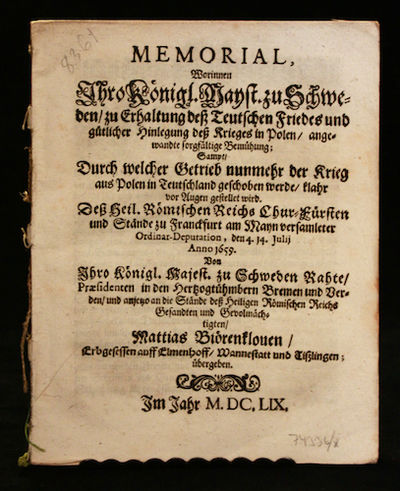 8361
MEMORIAL,
Worinnen
Ihro Königl. Mayst. zu Schwe-
den/ zu Erhaltung deß Teutschen Friedes und
gütlicher Hinlegung deß Krieges in Polen/ ange-
wandte sorgfältige Bemühung;
Sampt/
Durch welcher Getrieb nunmehr der Krieg
aus Polen in Teutschland geschoben werde/ klahr
vor Augen gestellet wird.
Deß Heil. Römischen Reichs Chur-Fürsten
und Stände zu Franckfurt am Mayn versamleter
Ordinar-Deputation, den 4. 14. Julij
Anno 1659.
Von
Ihro Königl. Majest. zu Schweden Rahte/
Præsidenten in den Hertzogtühmbern Bremen und Ver-
den/ und anjetzo an die Stände deß Heiligen Römischen Reichs
Gesandten und Gevolmäch-
tigten/
Mattias Biörenklouen/
Erbgesessen auff Elmenhoff/ Wannestatt und Tißlingen;
übergeben.
Im Jahr M. DC. LIX.